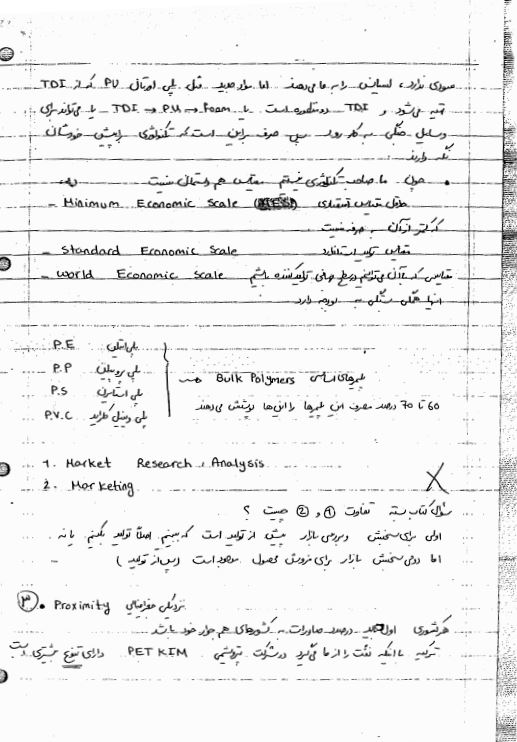 سودی ندارد، لیسانس را به ما می‌دهند اما مواد جدید مثل پلی اورتان PU که از TDI
تهیه می‌شود و TDI دو منظوره است یا TDI → PU → Foam یا می‌تواند برای
وسایل جنگی به کار رود پس صرف براین است که تکنولوژی را پیش خودشان
نگه دارند.
• چون ما صاحب تکنولوژی نیستیم مقیاس هم دستمان نیست
- Minimum Economic Scale (MES) حداقل مقیاس اقتصادی
که کمتر از آن به صرفه نیست
- Standard Economic Scale مقیاس تولید استاندارد
- World Economic Scale مقیاسی که با آن می‌توانیم در سطح جهانی تولید کننده باشیم
اینها همگی بستگی به بودجه دارد.
P.E پلی اتیلن
P.P پلی پروپیلن
P.S پلی استایرن
P.V.C پلی وینیل کلراید
Bulk Polymers پلیمرهای اساسی
60 تا 70 درصد مصرف این پلیمرها را این‌ها پوشش می‌دهند
1. Market Research, Analysis
2. Marketing
سؤال کتاب بسته تفاوت ① و ② چیست ؟
اولی برای سنجش و بررسی بازار پیش از تولید است که ببینیم اصلاً تولید بکنیم یا نه
اما دومی سنجش بازار برای فروش محصول موجود است (پس از تولید)
③ • Proximity نزدیکی جغرافیایی
هر کشوری اول باید درصد صادرات به کشورهای هم جوار خود باشد
ترکیه با اینکه نفت را از ما می‌گیرد در شرکت پتروشیمی PETKIM دارای تنوع بیشتری است